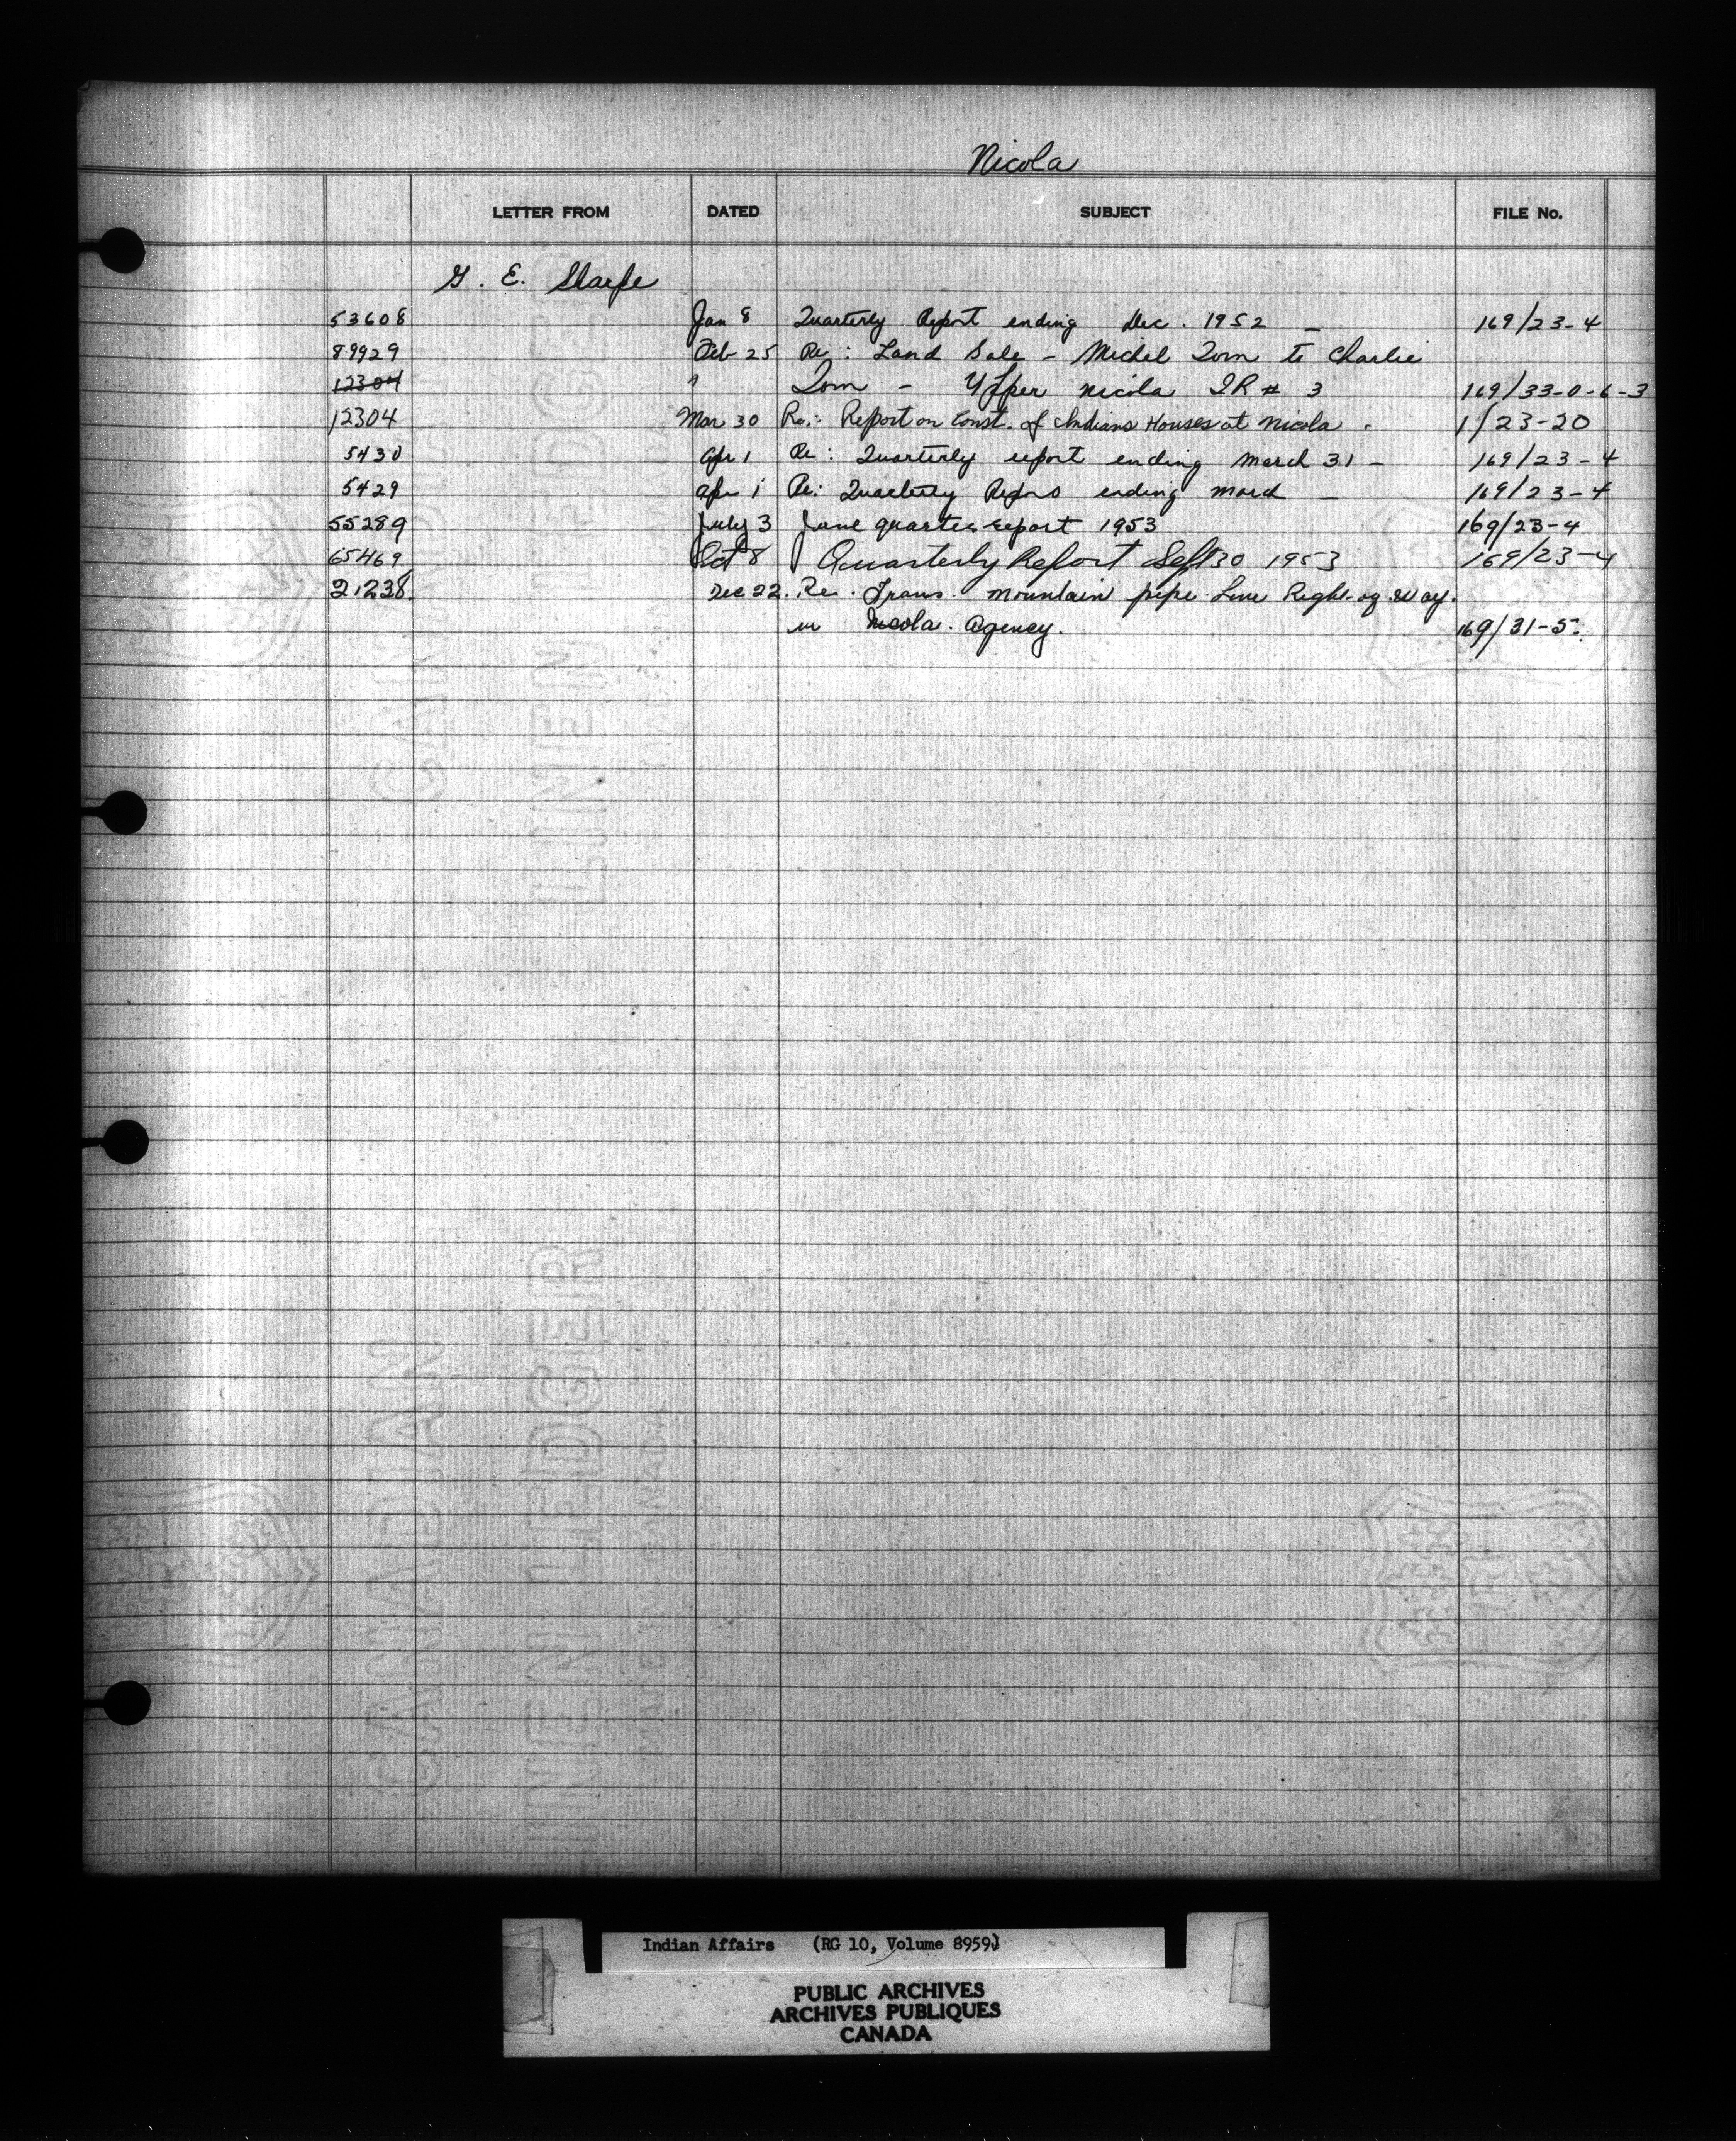 Nicola
LETTER FROM DATED SUBJECT FILE No.
G. E. Sharpe
53608 Jan 8 Quarterly Report ending Dec. 1952 - 169/23-4
89929 Feb 25 Re: Land Sale - Michel Tom to Charlie
12304 " Tom - Upper Nicola IR # 3 169/33-0-6-3
12304 Mar 30 Re: Report on Const. of Indians Houses at Nicola. 1/23-20
5430 Apr 1 Re: Quarterly report ending March 31 - 169/23-4
5429 Apr 1 Re: Quarterly ending March - 169/23-4
55289 July 3 June quarter report 1953 169/23-4
65469 Oct 8 Quarterly Report Sept 30 1953 169/23-4
21238. Dec 22. Re. Trans. Mountain pipe. Line Right-of-Way.
in Nicola. Agency. 169/31-5.
Indian Affairs (RG 10, Volume 8959)
PUBLIC ARCHIVES
ARCHIVES PUBLIQUES
CANADA